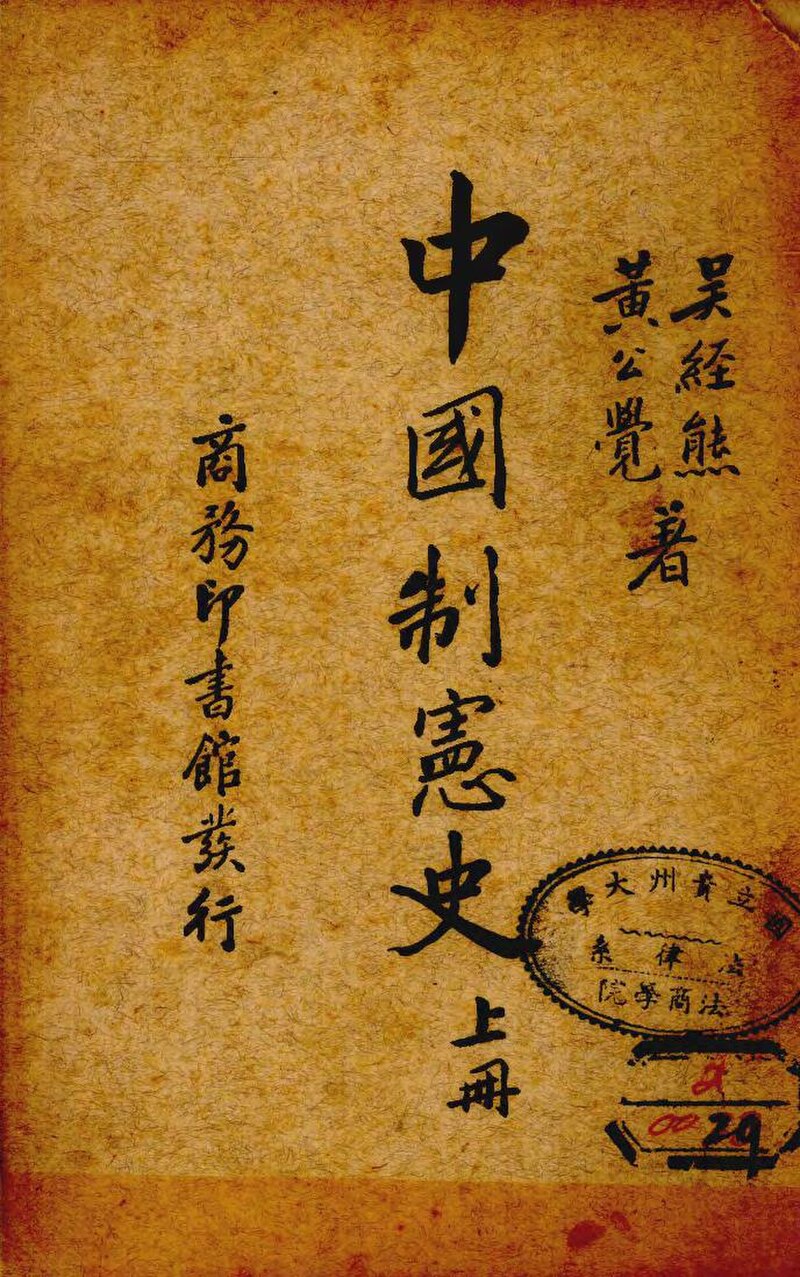 吴経熊
黃公覺
著
中國制憲史
上冊
商務印書館發行
國立貴州大學
法律系
法商學院
29